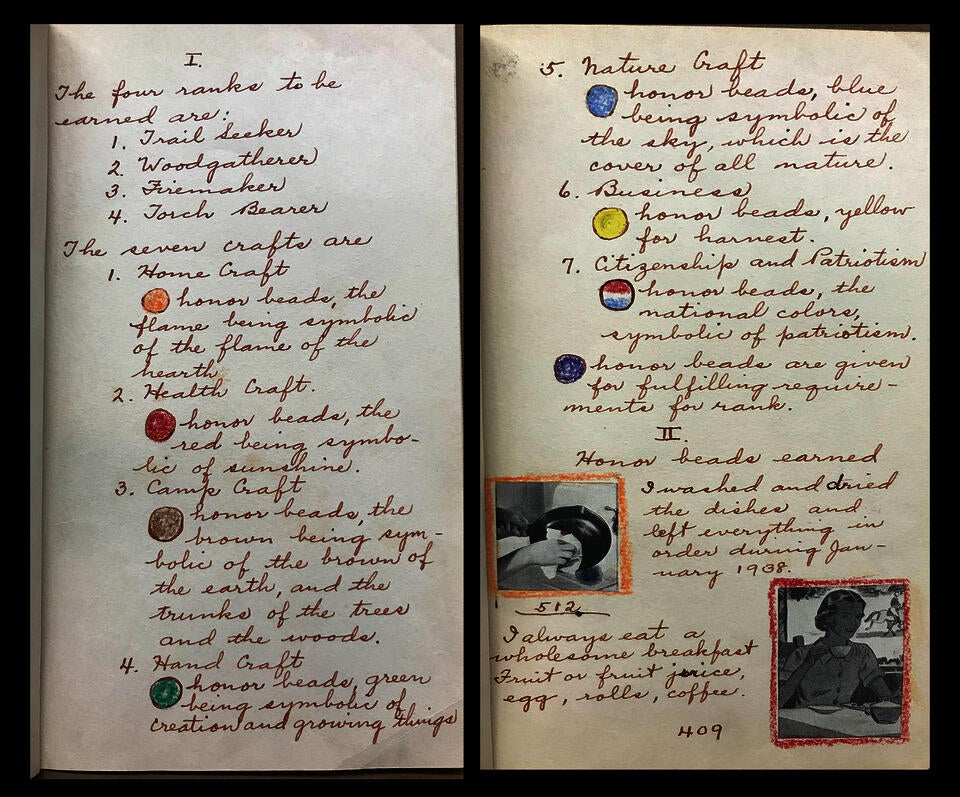 I.
The four ranks to be
earned are:
1. Trail Seeker
2. Woodgatherer
3. Firemaker
4. Torch Bearer
The seven crafts are
1. Home Craft
honor beads, the
flame being symbolic
of the flame of the
hearth
2. Health Craft.
honor beads, the
red being symbo-
lic of sunshine.
3. Camp Craft
honor beads, the
brown being sym-
bolic of the brown of
the earth, and the
trunks of the trees
and the woods.
4. Hand Craft
honor beads, green
being symbolic of
creation and growing things
5. Nature Craft
honor beads, blue
being symbolic of
the sky, which is the
cover of all nature.
6. Business
honor beads, yellow
for harvest.
7. Citizenship and Patriotism
honor beads, the
national colors,
symbolic of patriotism.
honor beads are given
for fulfilling require-
ments for rank.
II.
Honor beads earned
I washed and dried
the dishes and
left everything in
order during Jan-
uary 1938.
512
I always eat a
wholesome breakfast
Fruit or fruit juice,
egg, rolls, coffee.
409